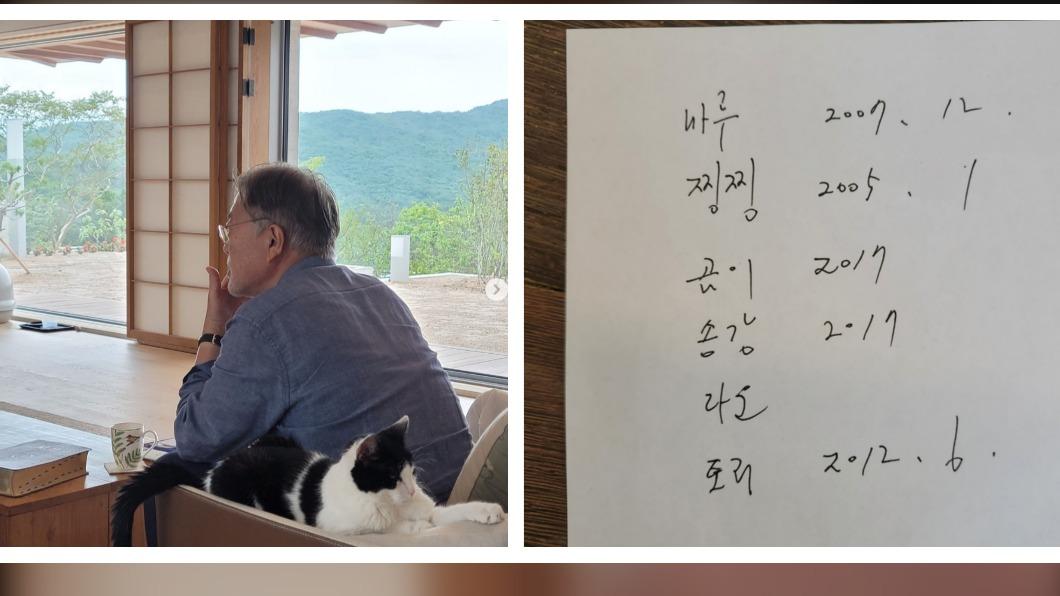 마루 2007. 12.
찡찡 2005. 1
곰이 2017
송강 2017
라온
토리 2012. 6.